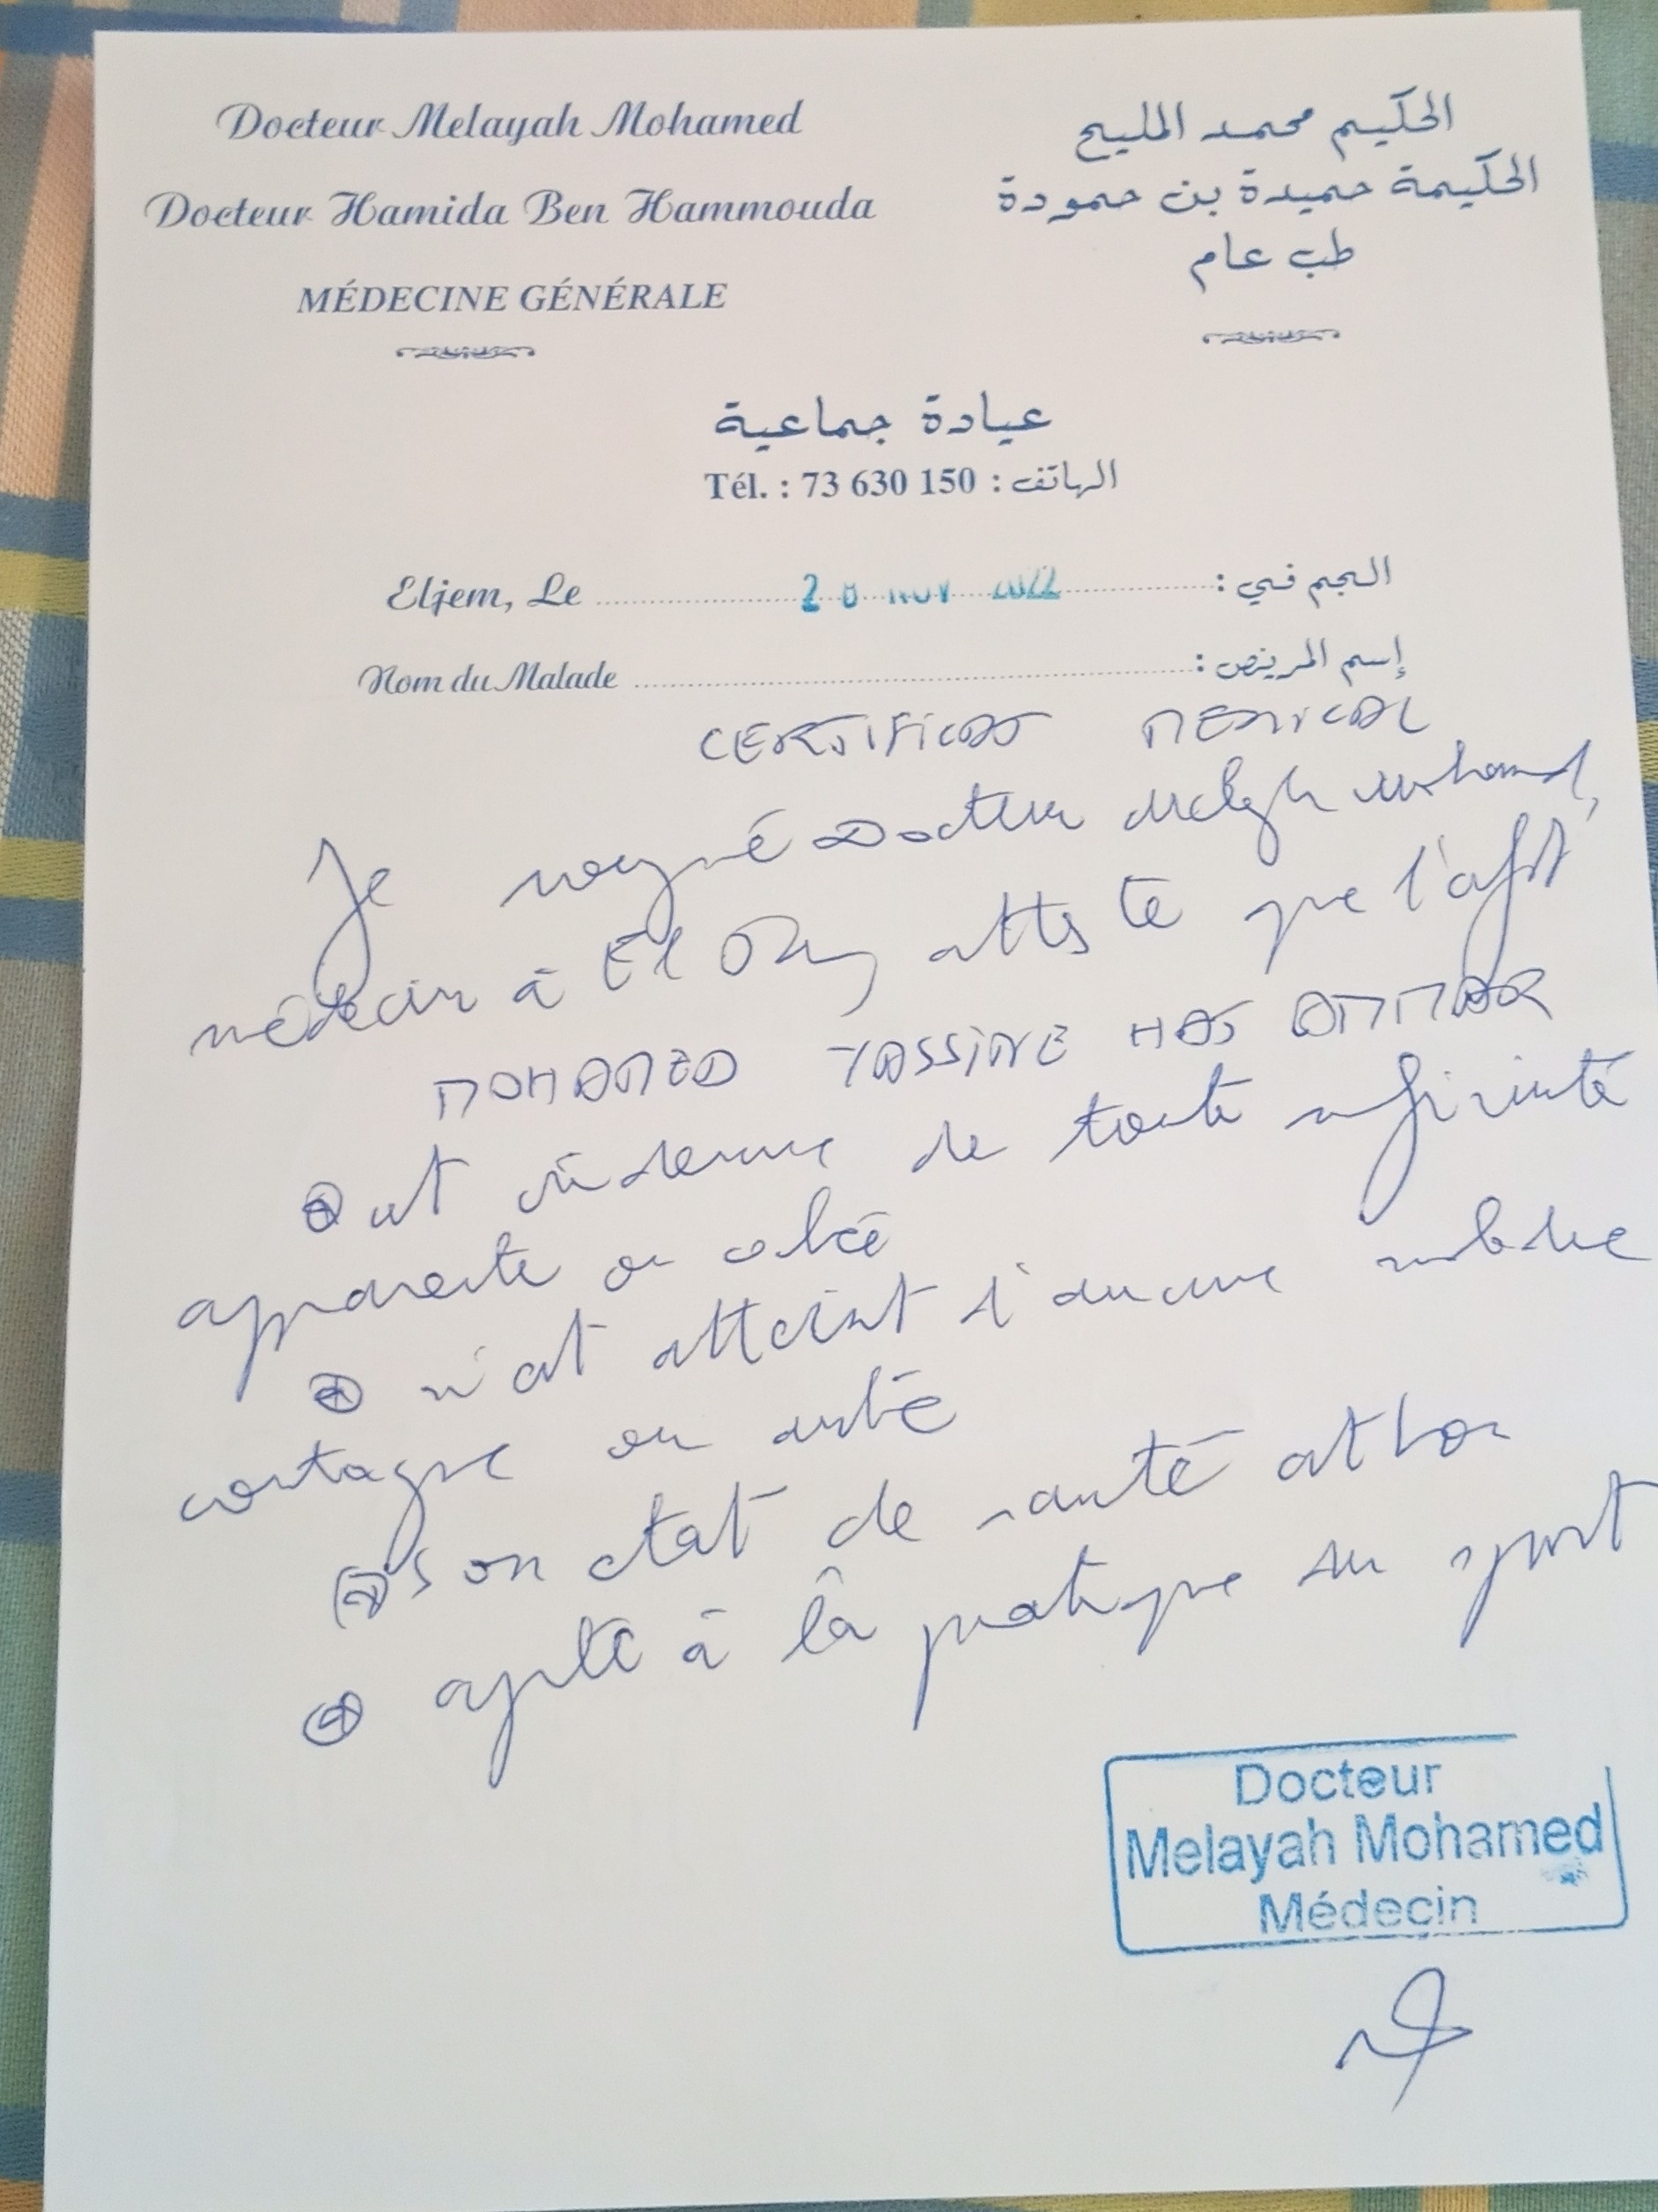 Docteur Melayah Mohamed
Docteur Hamida Ben Hammouda
MÉDECINE GÉNÉRALE
الحكيم محمد المليح
الحكيمة حميدة بن حمودة
طب عام
عيادة جماعية
Tél. : 73 630 150 : الهاتف
Eljem, Le 28 NOV 2022 الجم في :
Nom du Malade إسم المريض :
CERTIFICAT MEDICAL
Je soussigné Docteur Melayah Mohamed,
médecin à El Jem atteste que
MOHAMED YASSINE HAJ AMMAR
est indemne de toute infirmité
apparente ou cachée
n'est atteint d'aucune maladie
contagieuse ou
Son état de santé est bon
apte à la pratique du sport
Docteur
Melayah Mohamed
Médecin